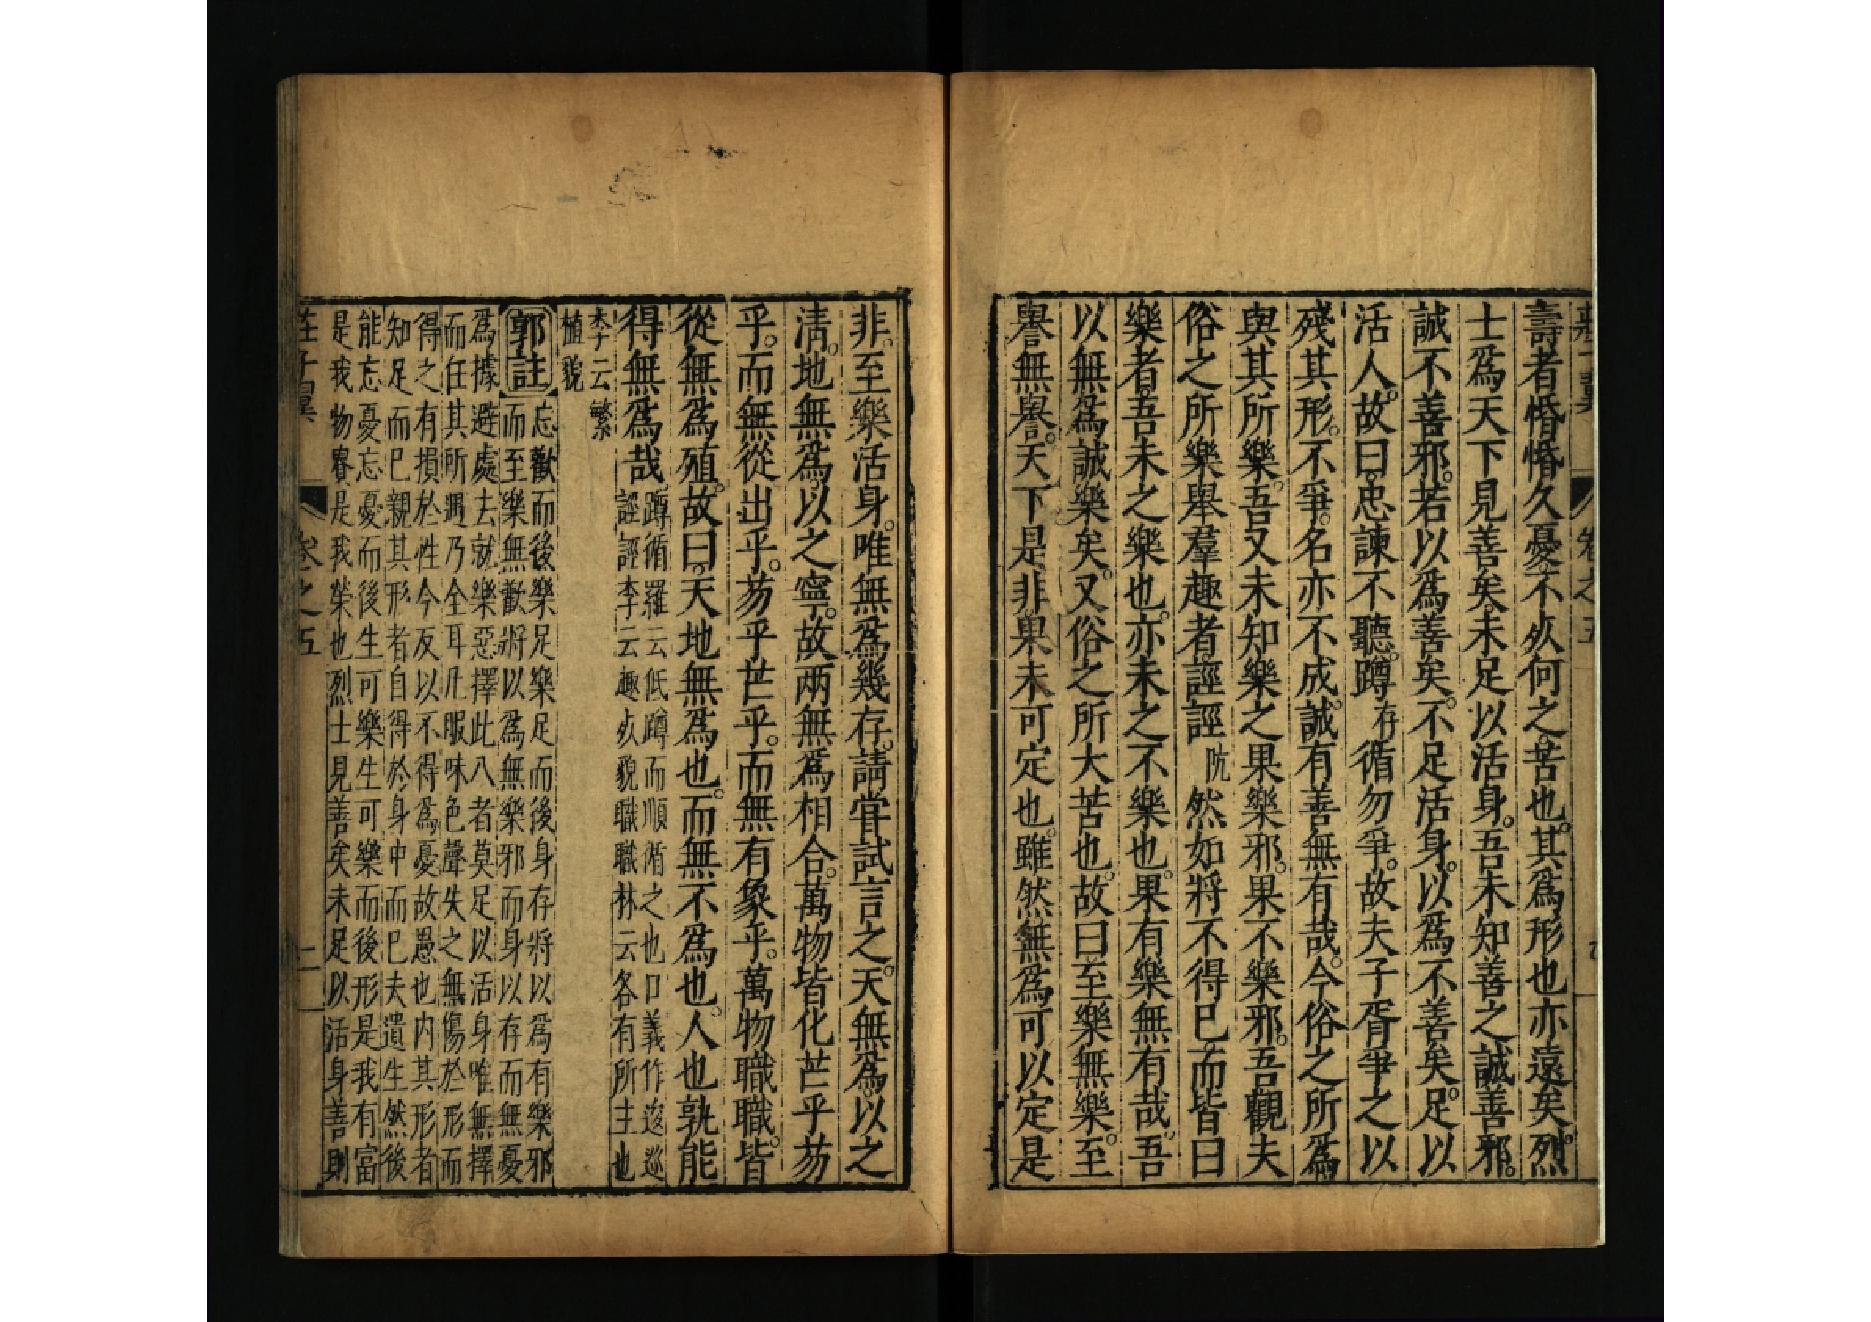 莊子翼　卷之五
壽者惛惛久憂不死何之。苦也。其爲形也亦遠矣。烈
士爲天下見善矣。未足以活身。吾未知善之誠善邪。
誠不善邪。若以爲善矣。不足活身。以爲不善矣。足以
活人。故曰。忠諫不聽。蹲存循勿爭。故夫子胥爭之以
殘其形。不爭。名亦不成。誠有善無有哉。今俗之所爲
與其所樂。吾又未知樂之果樂邪。果不樂邪。吾觀夫
俗之所樂舉羣趣者誙誙阬然如將不得已而皆曰
樂者。吾未之樂也。亦未之不樂也。果有樂無有哉。吾
以無爲誠樂矣。又俗之所大苦也。故曰至樂無樂。至
譽無譽。天下是非。果未可定也。雖然無爲可以定是
非。至樂活身。唯無爲幾存。請嘗試言之。天無爲。以之
清。地無爲。以之寧。故兩無爲相合。萬物皆化芒乎芴
乎。而無從出乎。芴乎芒乎。而無有象乎。萬物職職。皆
從無爲殖。故曰。天地無爲也。而無不爲也。人也孰能
得無爲哉
蹲循羅云低蹲而順循之也口義作逡巡
誙誙李云趣死貌職職林云各有所主也
李云繁
植貌
郭註
忘歡而後樂足樂足而後身存將以爲有樂邪
而至樂無歡將以爲無樂邪而身以存而無憂
爲據避處去就樂惡擇此八者莫足以活身唯無擇
而任其所遇乃全耳凡服味色聲失之無傷於形而
得之有損於性今反以不得爲憂故愚也内其形者
知足而已親其形者自得於身中而已夫遺生然後
能忘憂忘憂而後生可樂生可樂而後形是我有富
是我物貴是我榮也烈士見善矣未足以活身善則
莊子翼　卷之五　二